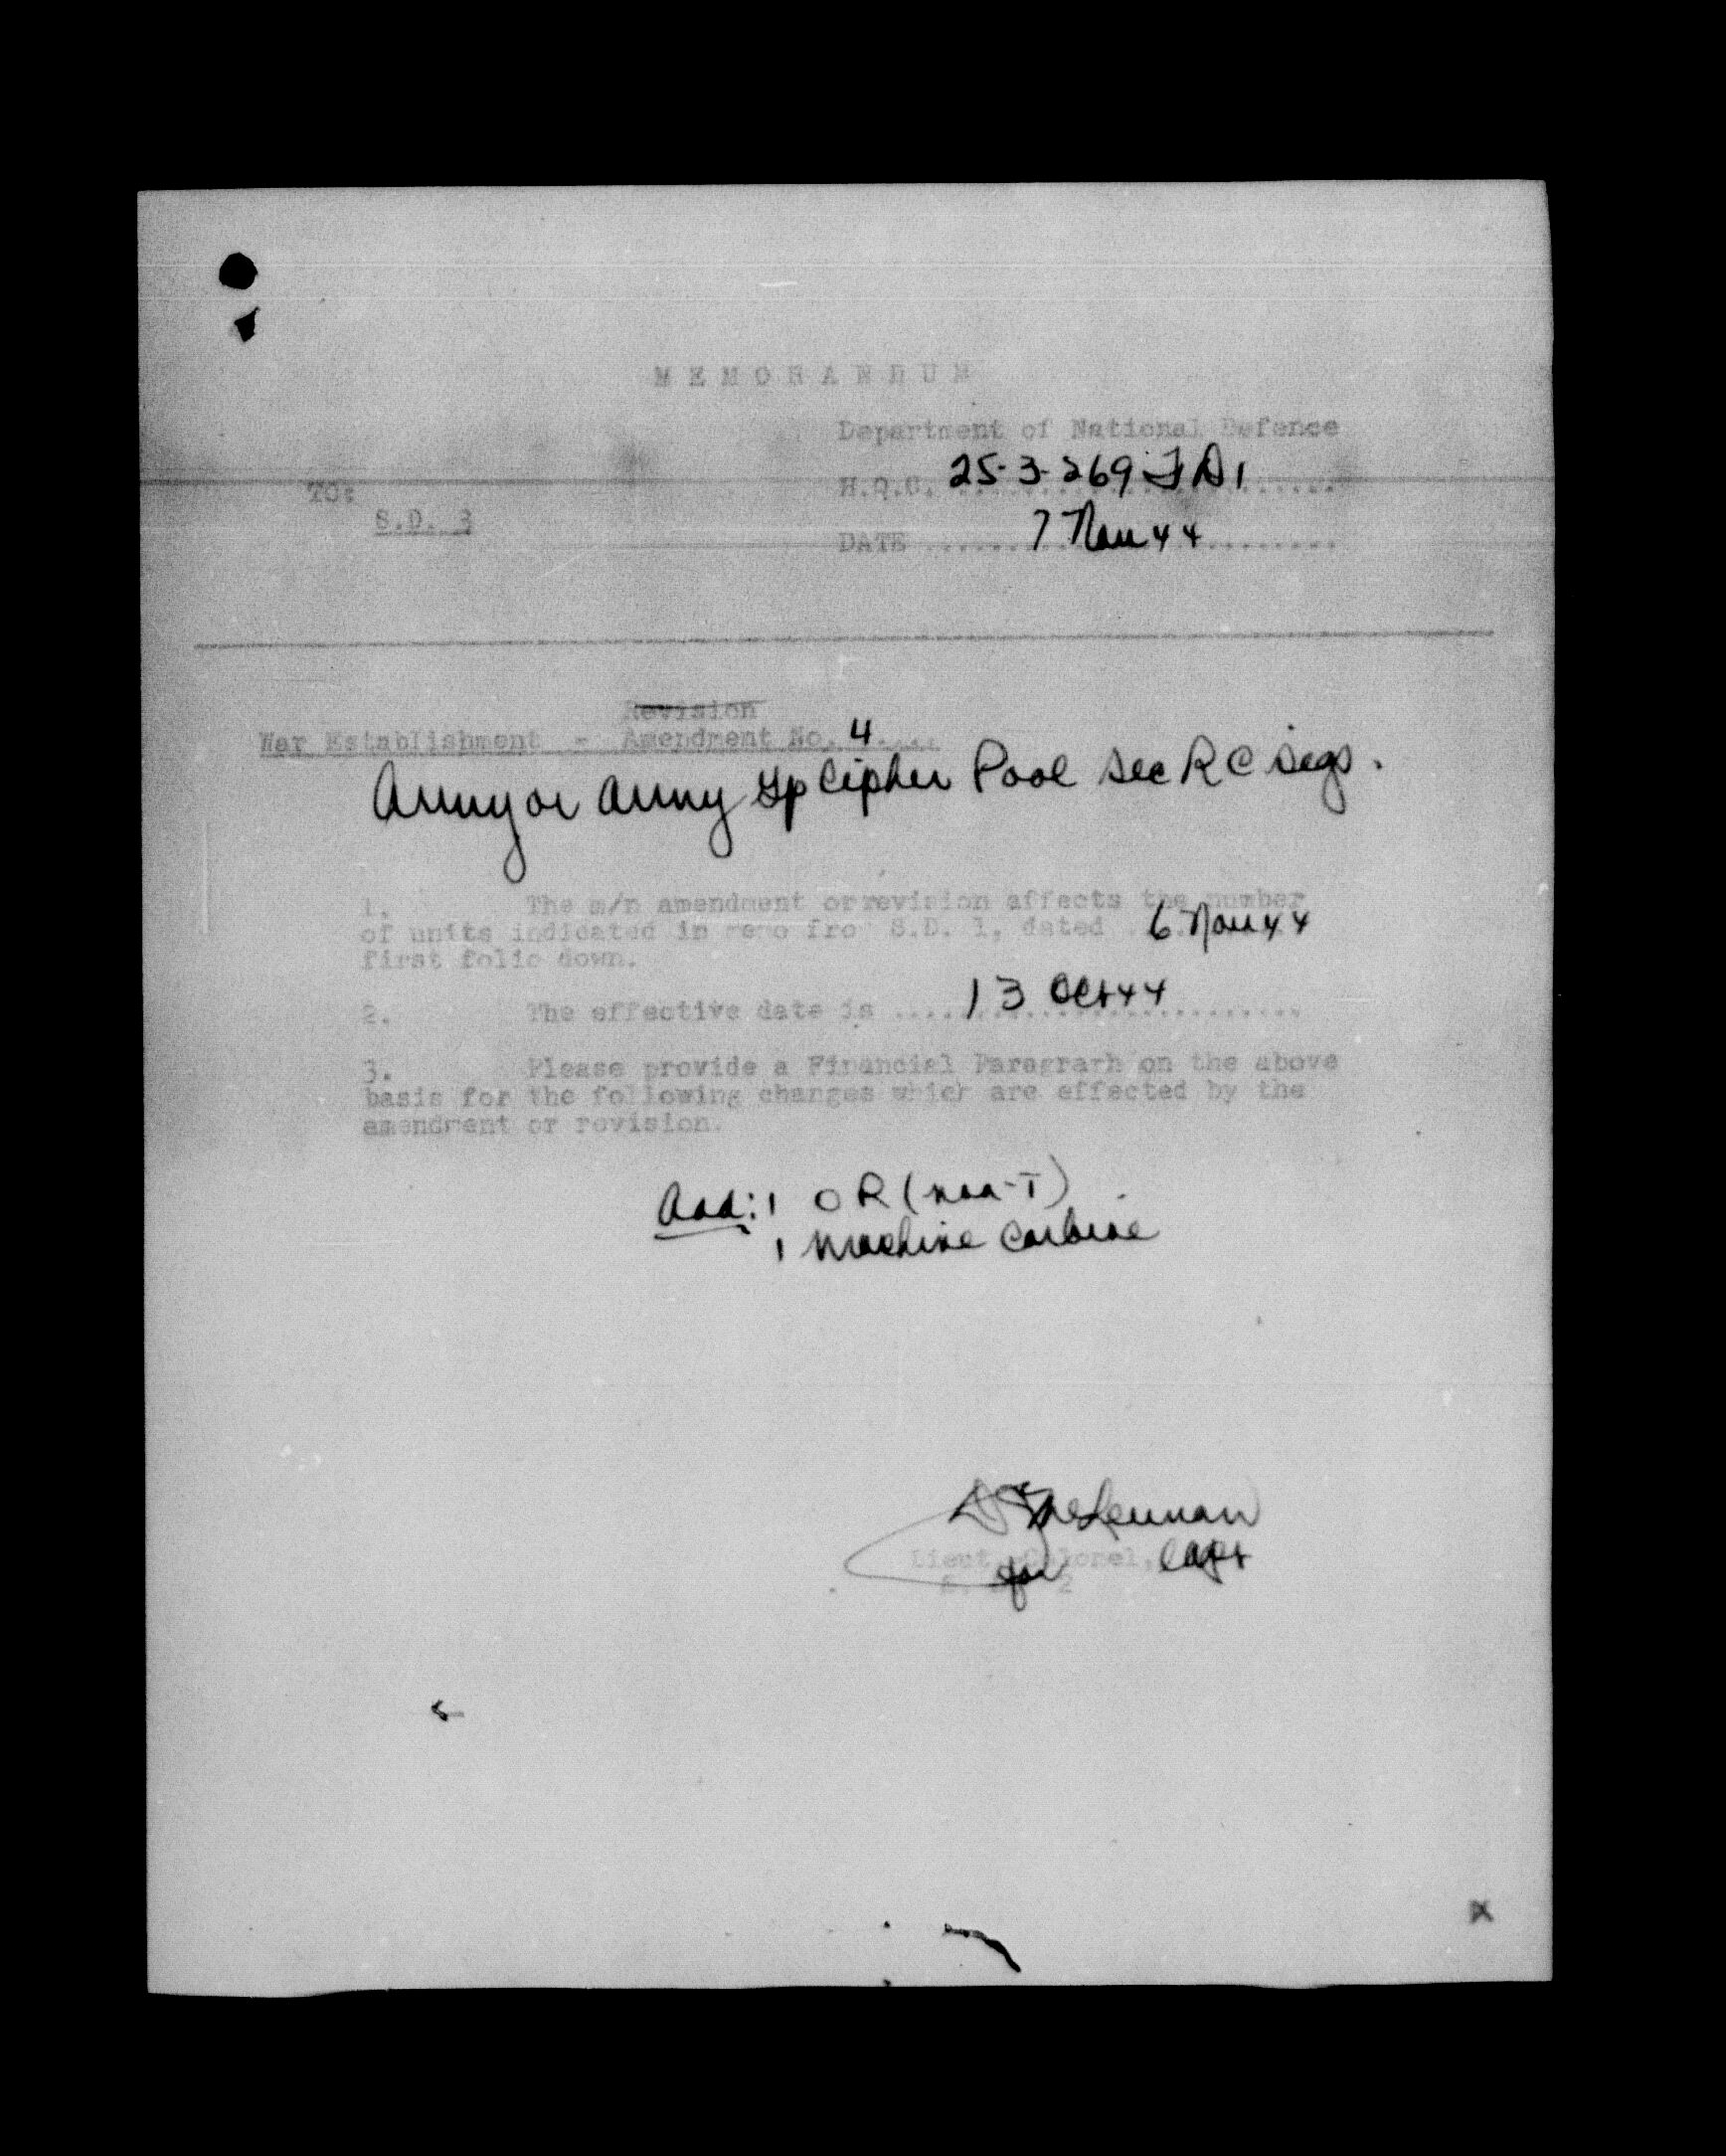 MEMORANDUM
Department of National Defence
H.Q.C. 25-3-269 FD 1
TO:
S.D. 3
DATE 7 Nov 44
Revision
War Establishment - Amendment No. 4
Army or Army Gp Cipher Pool Sec R C Sigs.
1. The m/n amendment or revision affects the number
of units indicated in memo from S.D. 1, dated 6 Nov 44
first folio down.
2. The effective date is 13 Oct 44
3. Please provide a Financial Paragraph on the above
basis for the following changes which are effected by the
amendment or revision.
Add: 1 OR (non-T)
1 machine carbine
McLennan
Lieut. Colonel, Capt
for
2
x